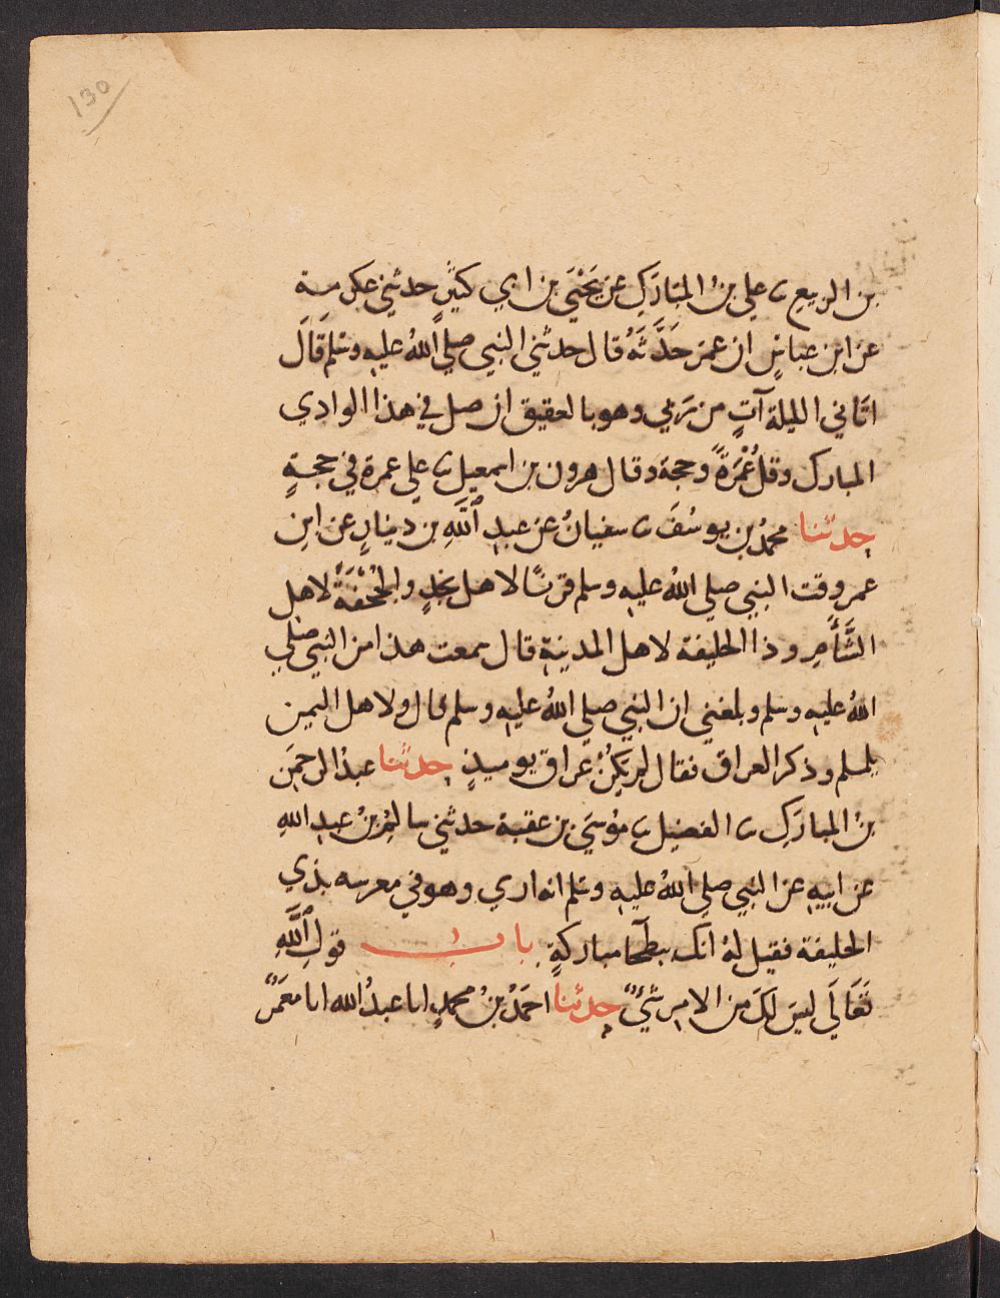 130
بن الربيع ثنا علي بنُ المبَارَكِ عن يَحْيَي بن ابي كثيرٍ حدثني عكرمة
عن ابن عباسٍ ان عمرَ حَدَّثَهُ قال حدثني النبي صلي اللهُ عليهِ وسَلم قَالَ
اتَاني الليلة آتٍ من رَبي وهو بالعقيق ان صل في هذا الوادِي
المبارك وقل عُمْرَةً وحجة وقال هرون بن اسمعيل ثنا علي عمرة في حجةٍ
حدثنا محمدُ بن يوسُفَ ثنا سفيانُ عن عبدِ اللَّهِ بن دينارٍ عن ابن
عمر وقت النبي صلي اللهُ عليهِ وسلم قرنًا لاهل نجدٍ والجُحْفَةَ لاهل
الشَّأمِ وذا الحليفة لاهل المدينةِ قال سمعت هذا من النبي صلي
اللهُ عليهِ وسلم وبلغني ان النبي صلي اللهُ عليهِ وسلم قال ولاهل اليمن
يلملم وذكر العراق فقال لم يَكنْ عراق يوميذٍ حدثنا عبدُ الرحمَن
بنُ المبارَكِ ثنا الفضيل ثنا موُسَي بن عقبة حدثني سالمُ بنُ عبدِ اللهِ
عن ابيهِ عن النبي صلي اللهُ عليهِ وسَلم انه اري وهو في معرسه بذي
الحليفة فقيل لهُ انك ببطحآ مباركةٍ باب قولِ اللَّهِ
تَعَالَي ليسَ لكَ من الامرِ شيٌ حدثنا احمَدُ بنُ محمدٍ انا عبدُ الله انا معمَرٌ